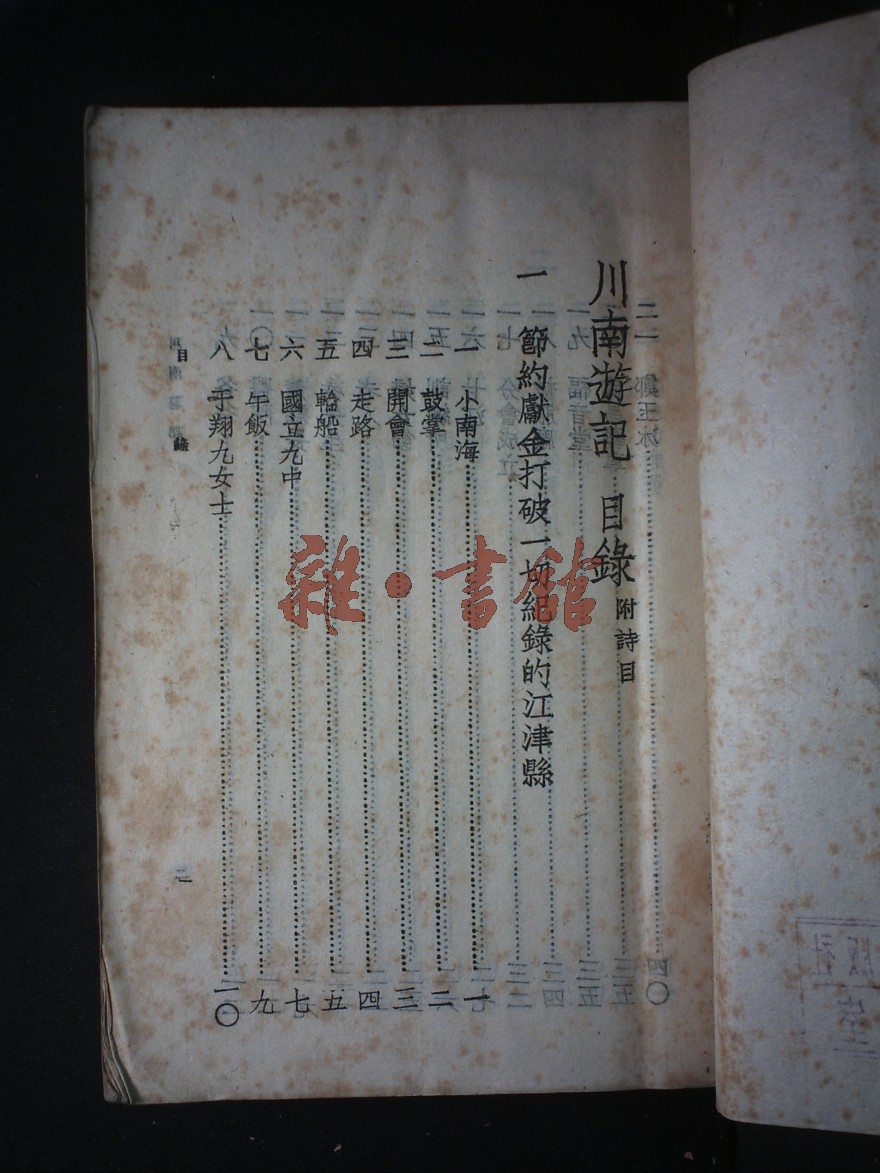 川南遊記 目錄 附詩目
一 節約獻金打破一切紀錄的江津縣
一 小南海 一
二 鼓掌 二
三 開會 三
四 走路 四
五 輪船 五
六 國立九中 七
七 午飯 九
八 于翔九女士 一〇
目錄
雜·書館